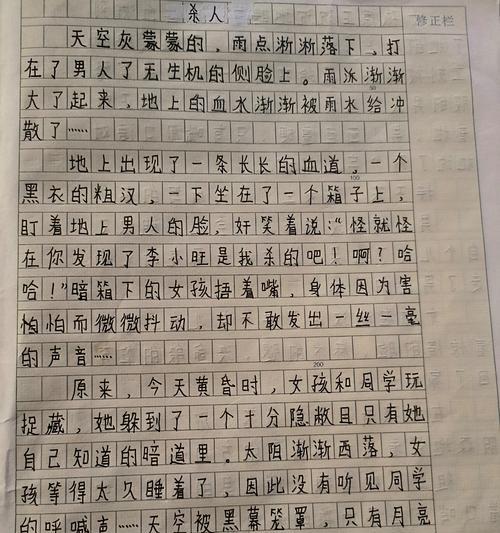 杀人
修正栏
天空灰蒙蒙的，雨点淅淅落下，打
在了男人了无生机的侧脸上。雨派渐渐
大了起来，地上的血水渐渐被雨水给冲
散了……
地上出现了一条长长的血道，一个
100
黑衣的粗汉，一下坐在了一个箱子上，
盯着地上男人的脸，奸笑着说："怪就怪
在你发现了李小旺是我杀的吧！啊？哈
哈！"暗箱下的女孩捂着嘴，身体因为害
怕怕而微微抖动，却不敢发出一丝一毫
的声音……
200
原来，今天黄昏时，女孩和同学玩
捉藏，她躲到了一个十分隐敝且只有她
自己知道的暗道里。太阳渐渐西落，女
孩等得太久睡着了，因此没有听见同学
的呼喊声……天空被黑幕笼罩，只有月亮